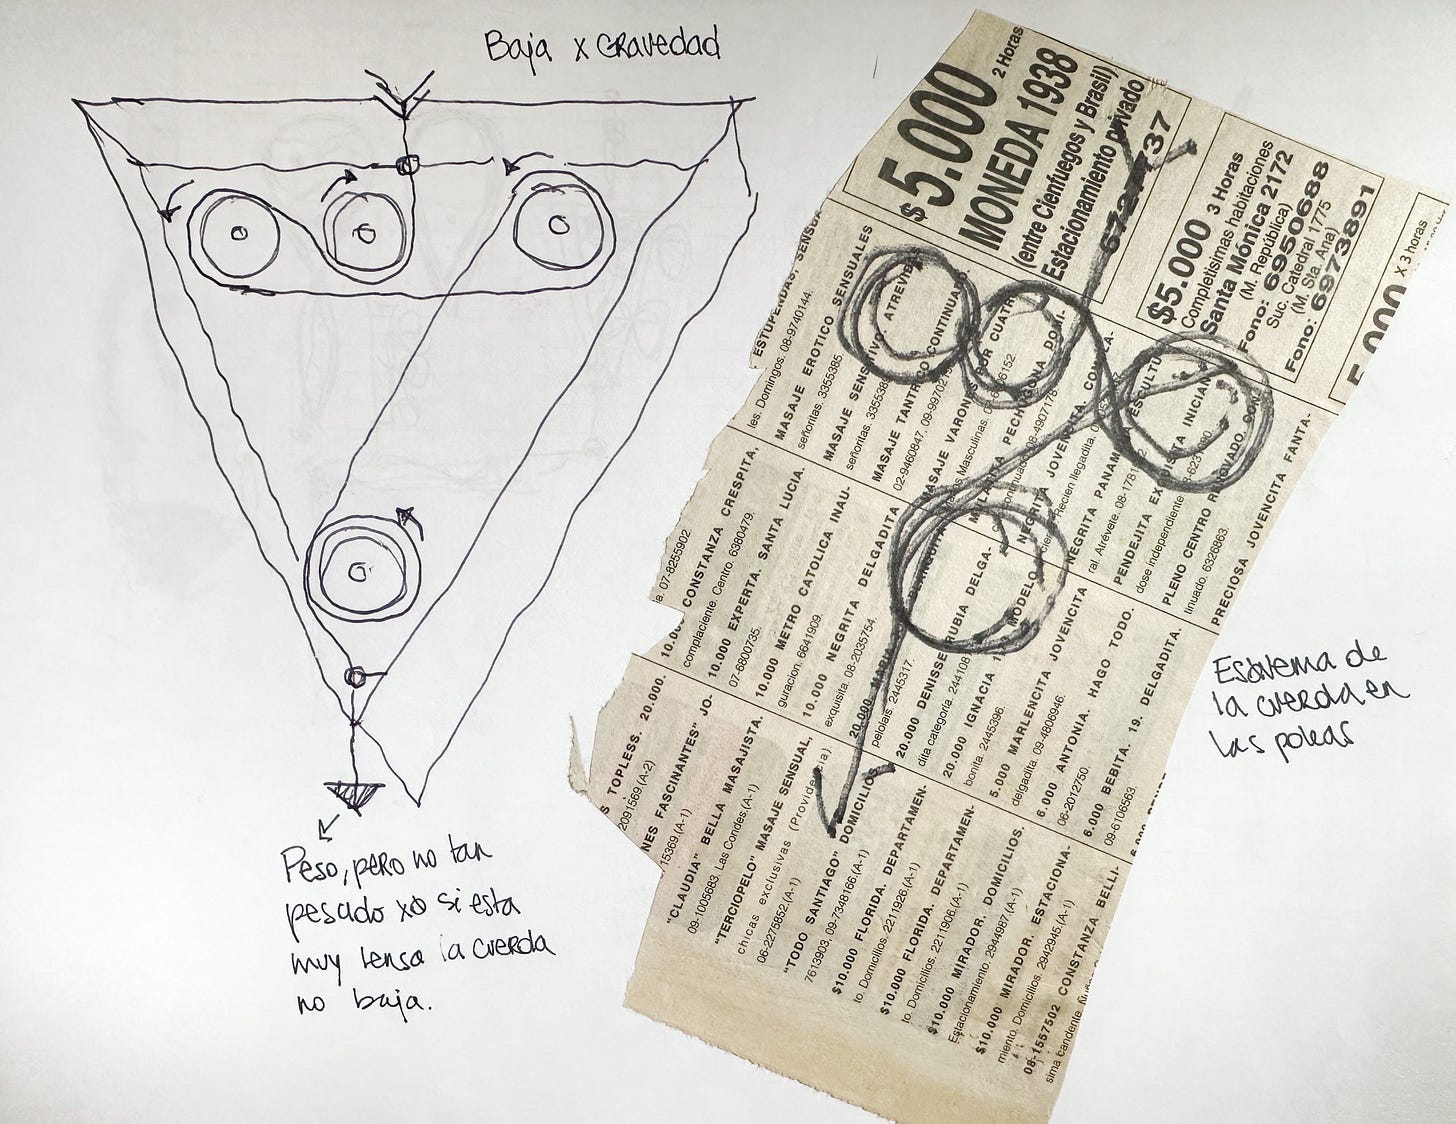 Baja x Gravedad
Peso, pero no tan
pesado xo si esta
muy tensa la cuerda
no baja.
Esquema de
la cuerda en
las poleas
$5.000 2 Horas
MONEDA 1938
(entre Cienfuegos y Brasil)
Estacionamiento privado
$5.000 3 Horas
Completisimas habitaciones
Santa Mónica 2172
(M. República)
Fono: 6950688
Suc. Catedral 1775
(M. Sta. Ana)
Fono: 6973891
5.000 X 3 horas
ESTUPENDAS, SENSUA
les. Domingos. 08-9740144.
MASAJE EROTICO SENSUALES
señoritas. 3355385.
MASAJE SENSITIVO. ATREVIDAS
señoritas. 3355385
MASAJE TANTRICO CONTINUADO
02-9460847, 09-99702
MASAJE VARONES POR CUATRO
Masculinas.
PECHUGONA DOMI-
08-4907178
NEGRITA JOVENCITA COLA-
Recien llegadita.
NEGRITA PANAM ESCULTU
ral. Atrévete. 08-178
PENDEJITA EX INICIAN
dose independiente
PLENO CENTRO RENOVADO. CON-
tinuado. 6326863.
PRECIOSA JOVENCITA FANTA-
a. 07-8255902
10.000 CONSTANZA CRESPITA,
complaciente. Centro. 6380479.
10.000 EXPERTA. SANTA LUCIA.
07-6800735.
10.000 METRO CATOLICA INAU-
guracion. 6641909.
10.000 NEGRITA DELGADITA
exquisita. 08-2035754.
20.000 MARU
pelolais. 2445317.
20.000 DENISSE RUBIA DELGA-
dita categoría. 244108
20.000 IGNACIA
bonita. 2445396.
5.000 MARLENCITA JOVENCITA
delgadita. 09-4806946.
6.000 ANTONIA. HAGO TODO.
06-2012750.
6.000 BEBITA. 19. DELGADITA.
09-6106563.
S TOPLESS. 20.000.
2091569.(A-2)
NES FASCINANTES" JO-
15369.(A-1)
"CLAUDIA" BELLA MASAJISTA.
09-1005683. Las Condes.(A-1)
"TERCIOPELO" MASAJE SENSUAL,
chicas exclusivas (Providencia)
06-2275852.(A-1)
"TODO SANTIAGO" DOMICILIO
7613903, 09-7348166.(A-1)
$10.000 FLORIDA. DEPARTAMEN-
to. Domicilios. 2211926.(A-1)
$10.000 FLORIDA. DEPARTAMEN-
to. Domicilios. 2211906.(A-1)
$10.000 MIRADOR. DOMICILIOS.
Estacionamiento. 2944987.(A-1)
$10.000 MIRADOR. ESTACIONA-
miento. Domicilios. 2942945.(A-1)
08-1557502 CONSTANZA BELLI-
sima bandente.